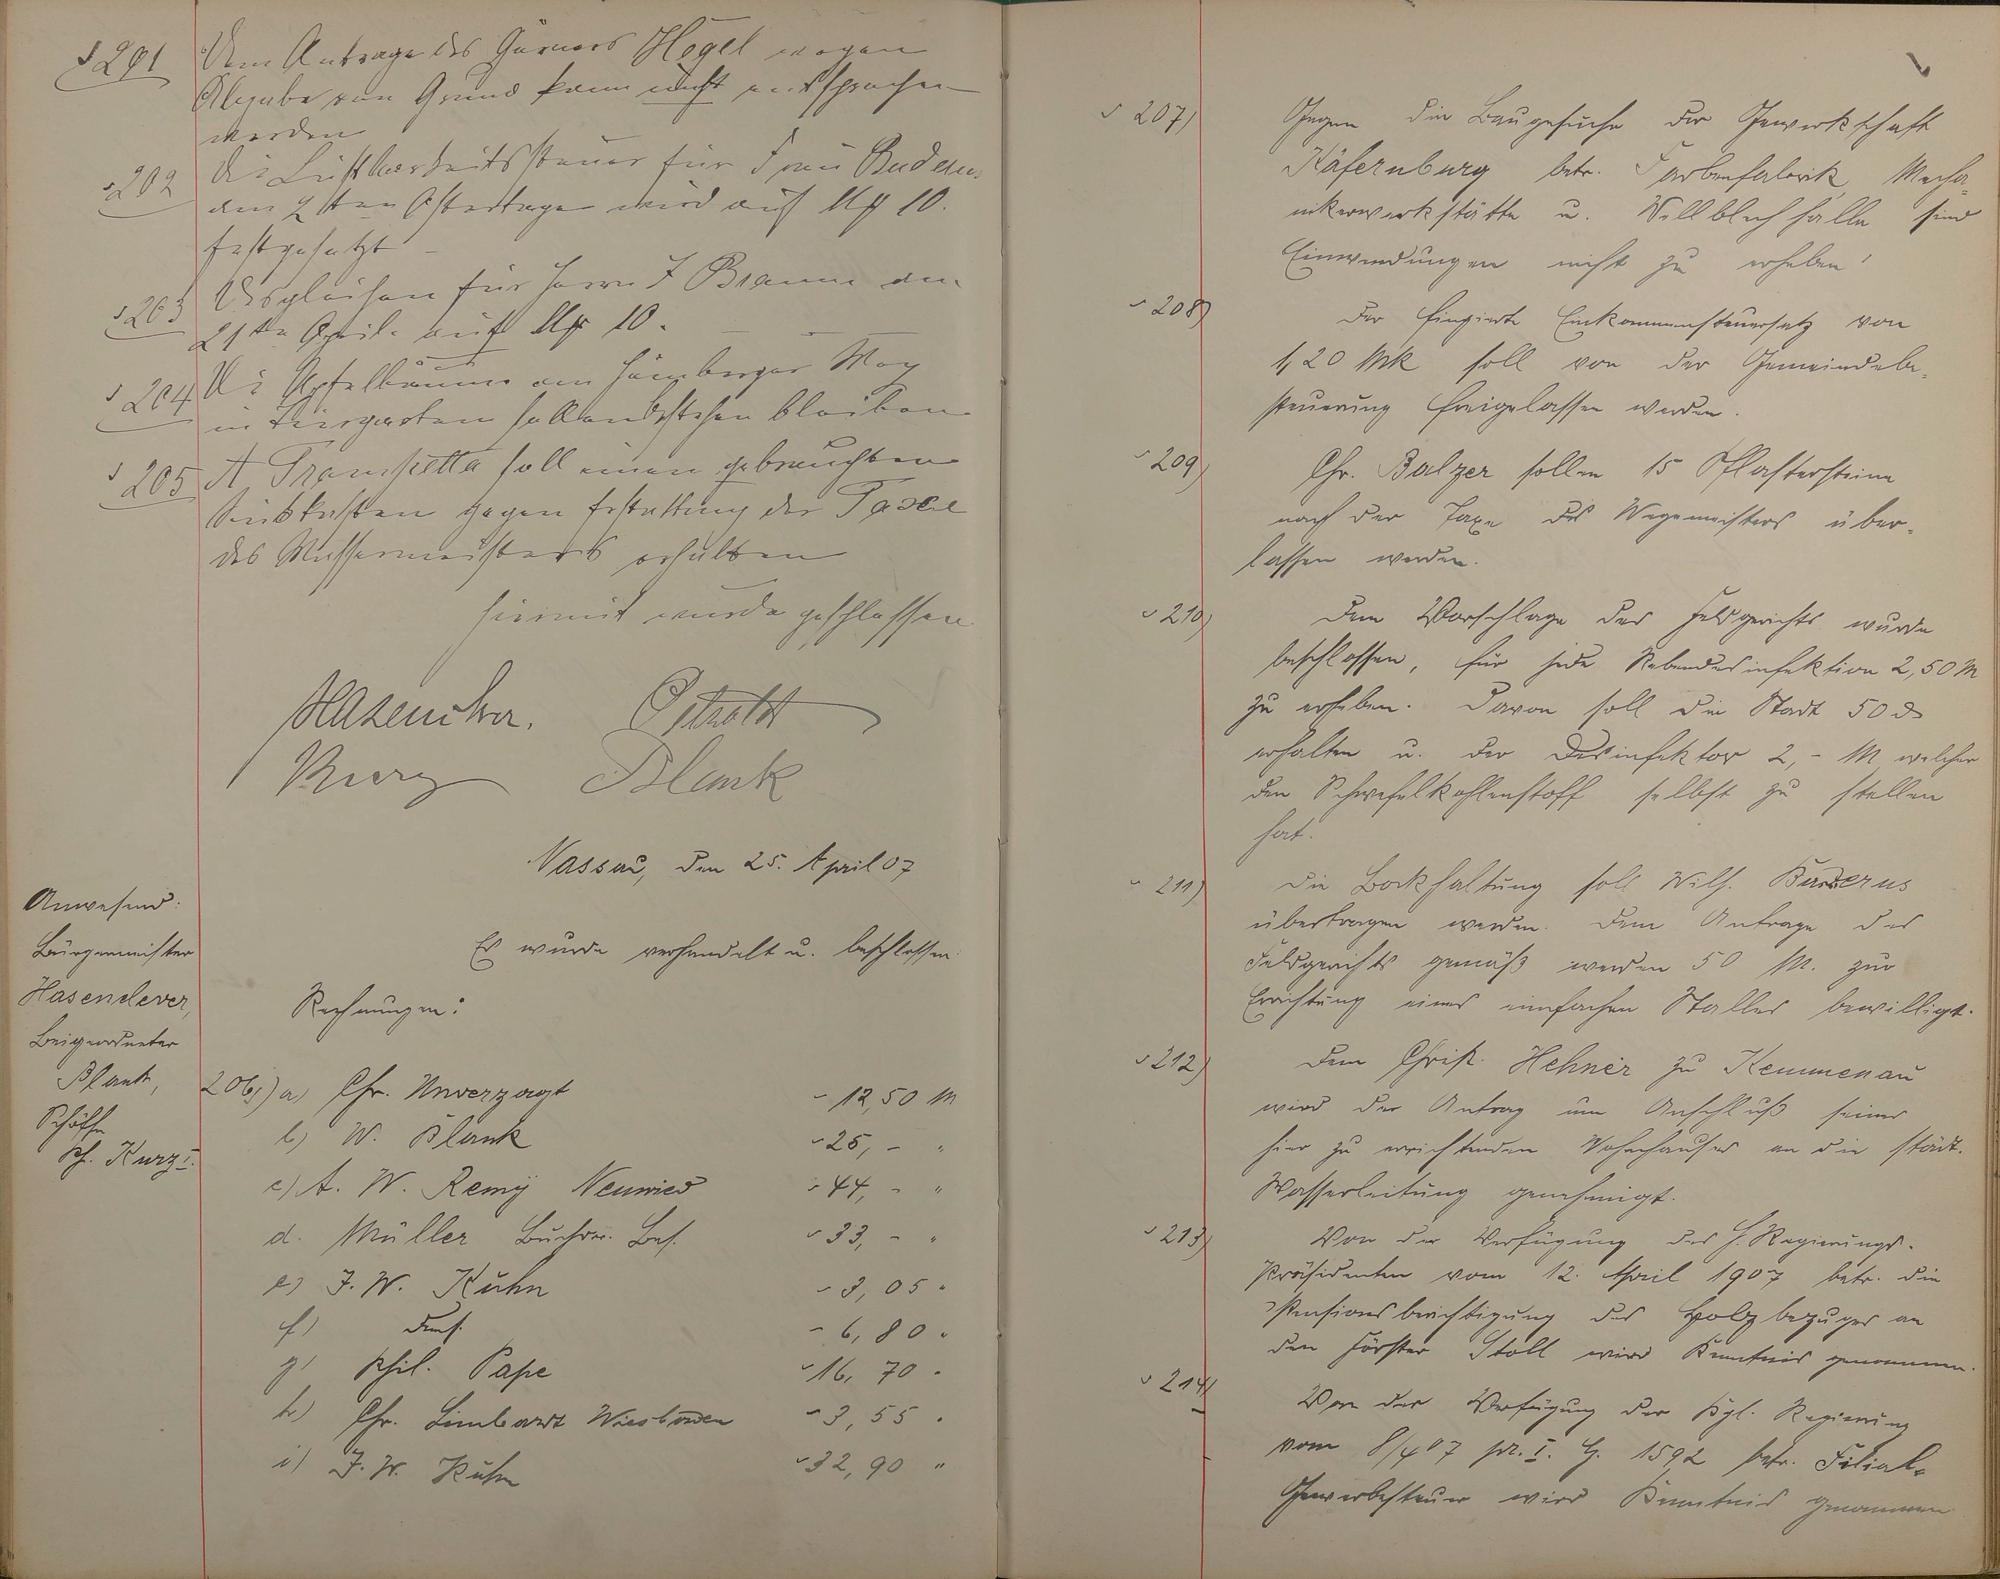 201 Dem Antrage des Gärtners Högel wegen
Abgabe von Grund kann nicht entsprochen
werden
202 Die Lustbarkeitssteuer für Frau Buderus
am 2ten Ostertage wird auf Mk 10.
festgesetzt -
203 Desgleichen für Herrn F Braun am
21ten April auf Mk 10.
204 Die Apfelbäume am Hömberger Weg
im Tiergarten sollen stehen bleiben
205 A. Trombetta soll einen gebrauchten
Sinkkasten gegen Erstattung der Taxe
des Wassermeisters erhalten
hiermit wurde geschlossen
Hasenclever.
Kurz Blank
Nassau, den 25. April 07
Anwesend:
Bürgermeister
Hasenclever,
Beigeordneter
Blank,
Schöffe
Ph. Kurz I.
Es wurde verhandelt u. beschlossen:
Rechnungen:
206,) a) Chr. Unverzagt 12,50 M
b) W. Blank 25, - "
c) A. W. Remÿ Neuwied 44, - "
d. Müller Buchdr. Bes. 33, - "
e) J. W. Kuhn 3,05 "
f) Ders. 6,80 "
g) Phil. Pape 16,70 "
h) Chr. Limbarth Wiesbaden 3,55 "
i) J. W. Kuhn 32,90 "
207) Gegen die Baugesuche der Gewerkschaft
Käfernburg betr. Farbenfabrik, Mecha-
nikerwerkstätte u. Wellblechhalle sind
Einwendungen nicht zu erheben!
208) Der fingierte Einkommensteuersatz von
1,20 Mk soll von der Gemeindebe-
steuerung freigelassen werden.
209) Chr. Balzer sollen 15 Pflastersteine
nach der Taxe des Wegemeisters über-
lassen werden.
210) Dem Vorschlage des Feldgerichts wurde
beschlossen, für jede Rebendesinfektion 2,50 M
zu erheben. Davon soll die Stadt 50 ₰
erhalten u. der Desinfektor 2, - M welcher
den Schwefelkohlenstoff selbst zu stellen
hat.
211) Die Bockhaltung soll Wilh. Buderus
übertragen werden. Dem Antrage des
Feldgerichts gemäß werden 50 M. zur
Errichtung eines einfachen Stalles bewilligt.
212) Dem Christ. Hehner zu Kemmenau
wird der Antrag um Anschluß seines
hier zu errichtenden Wohnhauses an die städt.
Wasserleitung genehmigt.
213) Von der Verfügung des H. Regierungs-
Präsidenten vom 12. April 1907 betr. die
Pensionsberechtigung des Holzbezuges an
den Förster Stoll wird Kenntnis genommen.
214) Von der Verfügung der Kgl. Regierung
vom 8/4 07 pr. I. G. 1592 betr. Filial-
Gewerbesteuer wird Kenntnis genommen